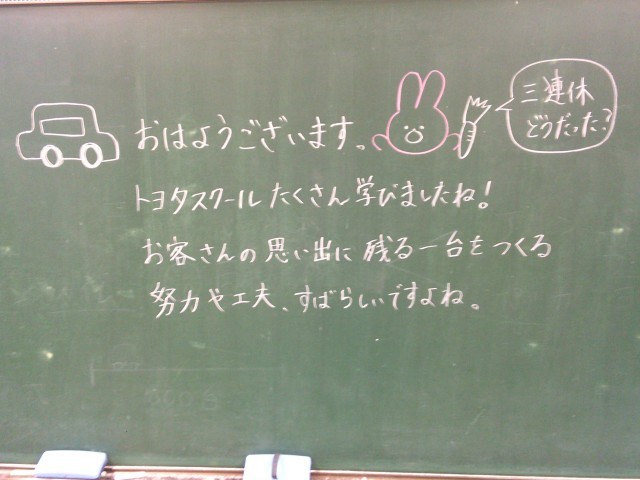 三連休
どうだった?
おはようございます。
トヨタスクールたくさん学びましたね!
お客さんの思い出に残る一台をつくる
努力や工夫、すばらしいですよね。